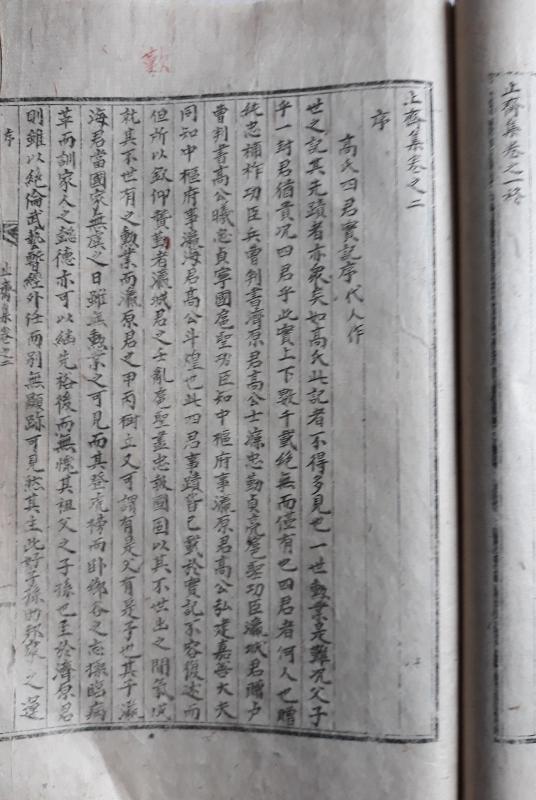 止齋集卷之一終
歎
止齋集卷之二
序
高氏四君實記序代人作
世之記其先蹟者亦衆矣如高氏此記者不得多見也一世勳業是難况父子
乎一封君猶貴况四君乎此實上下數千載絶無而僅有也四君者何人也贈
純忠補祚功臣兵曹判書濟原君高公士㢘忠勤貞亮扈聖功臣瀛城君贈户
曹判書高公曦忠貞寧國扈聖功臣知中樞府事瀛原君高公弘建嘉善大夫
同知中樞府事瀛海君高公斗煌也此四君事蹟皆已載於實記不容復述而
但所以致仰贊勳者瀛城君之壬亂扈聖盡忠報國固以其不世出之間氣成
就其不世有之勳業而瀛原君之甲丙樹立又可謂有是父有是子也其于瀛
海君當國家無虞之日雖無勳業之可見而其登虎榜而卧鄕谷之志操臨病
革而訓家人之懿德亦可以繼先裕後而無愧其祖父之子孫也至於濟原君
則雖以絶倫武藝暫經外任而別無顯跡可見然其生此好子孫助邦家之運
序
止齋集卷之二